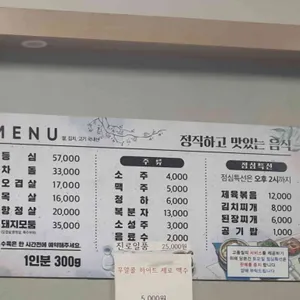 MENU
정직하고 맛있는 음식
등 심 57,000
차 돌 33,000
오 겹 살 17,000
목 살 16,000
항 정 살 20,000
돼지모듬 35,000
1인분 300g
주 류
소 주 4,000
맥 주 5,000
청 하 6,000
복 분 자 13,000
소 성 주 3,000
음 료 수 2,000
진로일품 25,000원
점심특선
점심특선은 오후 2시까지
제육볶음 12,000
김치찌개 8,000
된장찌개 6,000
공 기 밥 1,000
무알콜 하이트 제로 맥주
5,000원